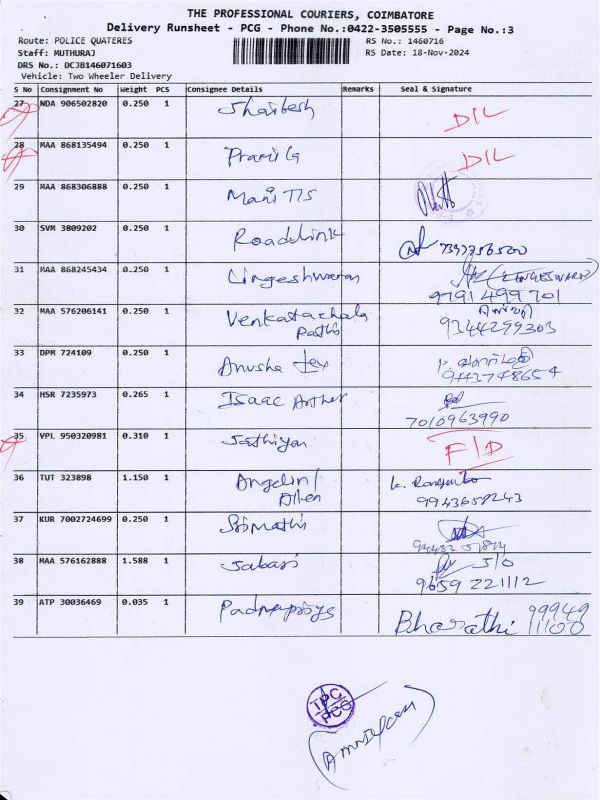 THE PROFESSIONAL COURIERS, COIMBATORE
Delivery Runsheet - PCG - Phone No.:0422-3505555 - Page No.:3
Route: POLICE QUATERES RS No.: 1460716
Staff: MUTHURAJ RS Date: 18-Nov-2024
DRS No.: DCJB146071603
Vehicle: Two Wheeler Delivery
S No Consignment No Weight PCS Consignee Details Remarks Seal & Signature
27 NDA 906502820 0.250 1 Shailesh D/L
28 MAA 868135494 0.250 1 Pramila D/L
29 MAA 868306888 0.250 1 Mani T/s
30 SVM 3809202 0.250 1 Roadlink
31 MAA 868245434 0.250 1 Lingeshwaran (LINGESWARAN)
9791499701
32 MAA 576206141 0.250 1 Venkatachala
Pathi 9344299303
33 DPM 724109 0.250 1 Anusha Tex
9443748654
34 HSR 7235973 0.265 1 Isaac Arther
7010963990
35 VPL 950320981 0.310 1 Sathiyan F/D
36 TUT 323898 1.150 1 Angelin/
Allen 9943658243
37 KUR 7002724699 0.250 1 Srimathi
38 MAA 576162888 1.588 1 Sabari S/O
9659 221112
39 ATP 30036469 0.035 1 Bharathi 99949
11100
TPC
PCG